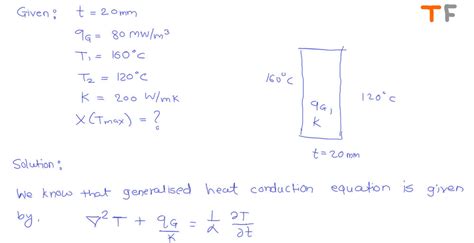 TF
Given: t = 20mm
q_G = 80 MW/m³
T₁ = 160°C
T₂ = 120°C
K = 200 W/mK
X(Tmax) = ?
160°C
120°C
q_G,
K
t = 20mm
Solution:
We know that generalised heat conduction equation is given
by, ∇²T + q_G/K = 1/α ∂T/∂t